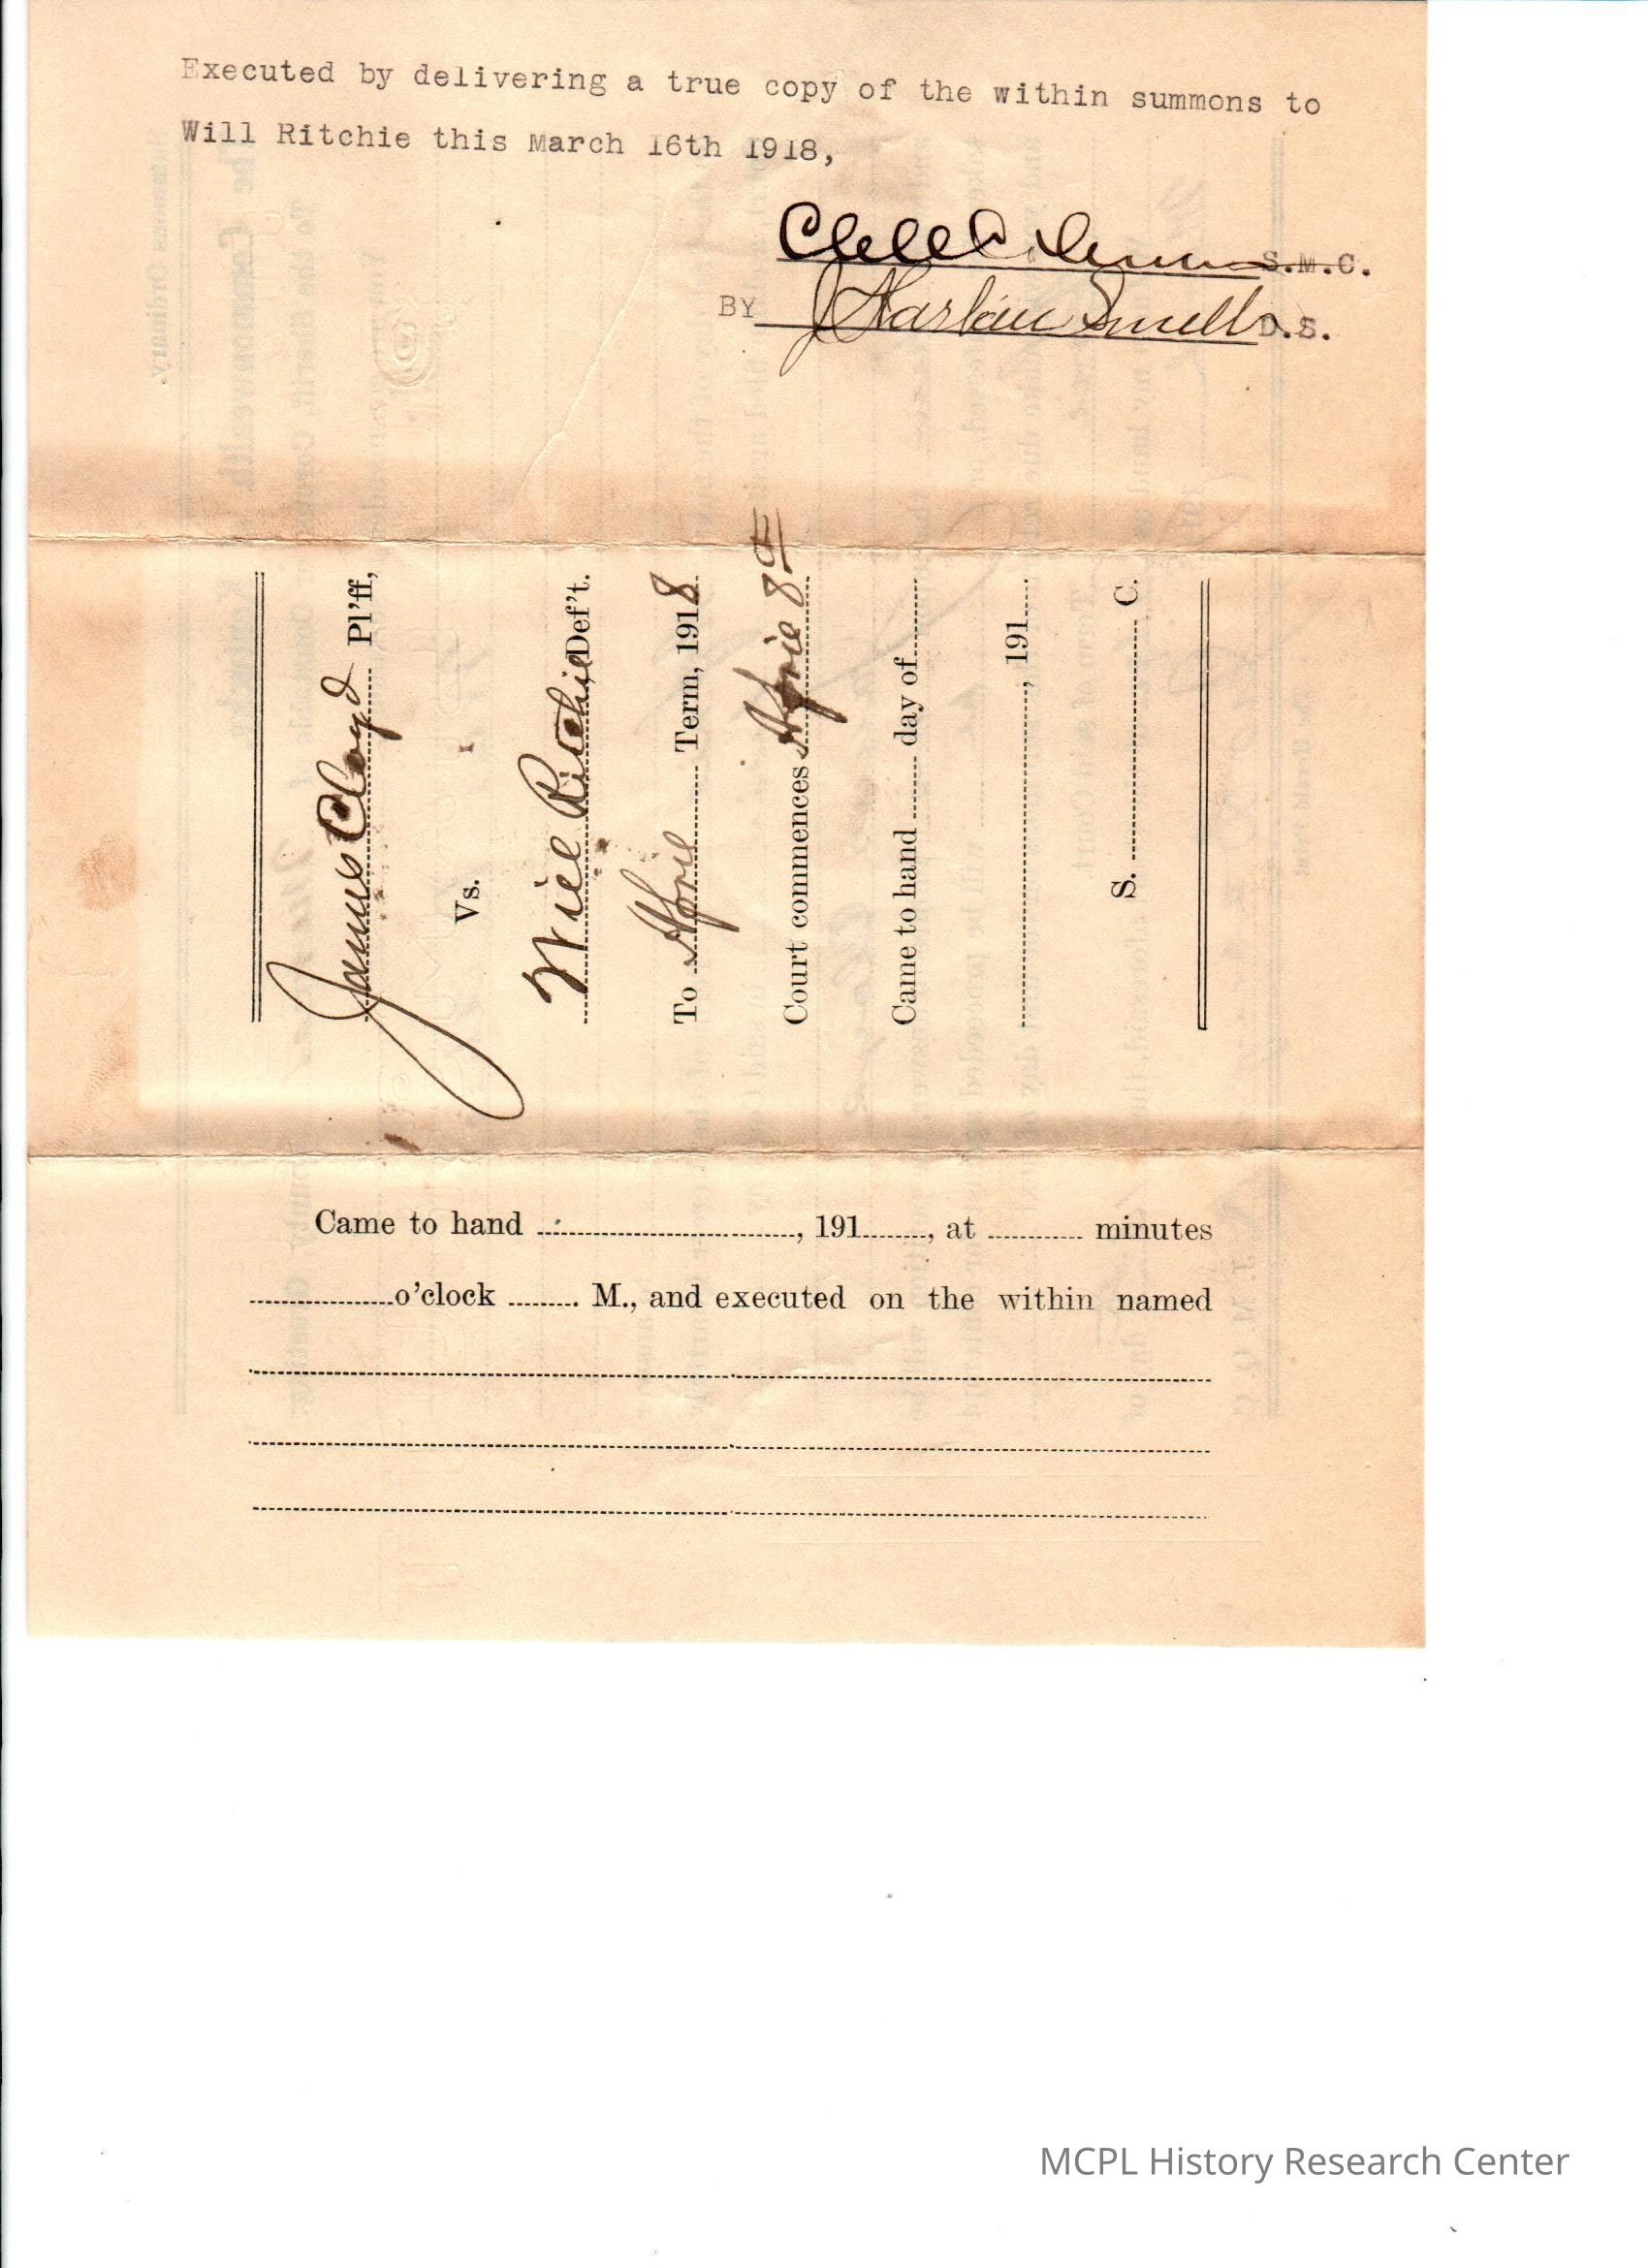 Executed by delivering a true copy of the within summons to
Will Ritchie this March 16th 1918,
S.M.C.
BY J Harlan Smell D.S.
James Cloyd Pl'ff,
Vs.
Will Ritchie Def't.
To April Term, 1918
Court commences April 8th
Came to hand day of
, 191
S. C.
Came to hand , 191 , at minutes
o'clock M., and executed on the within named
MCPL History Research Center